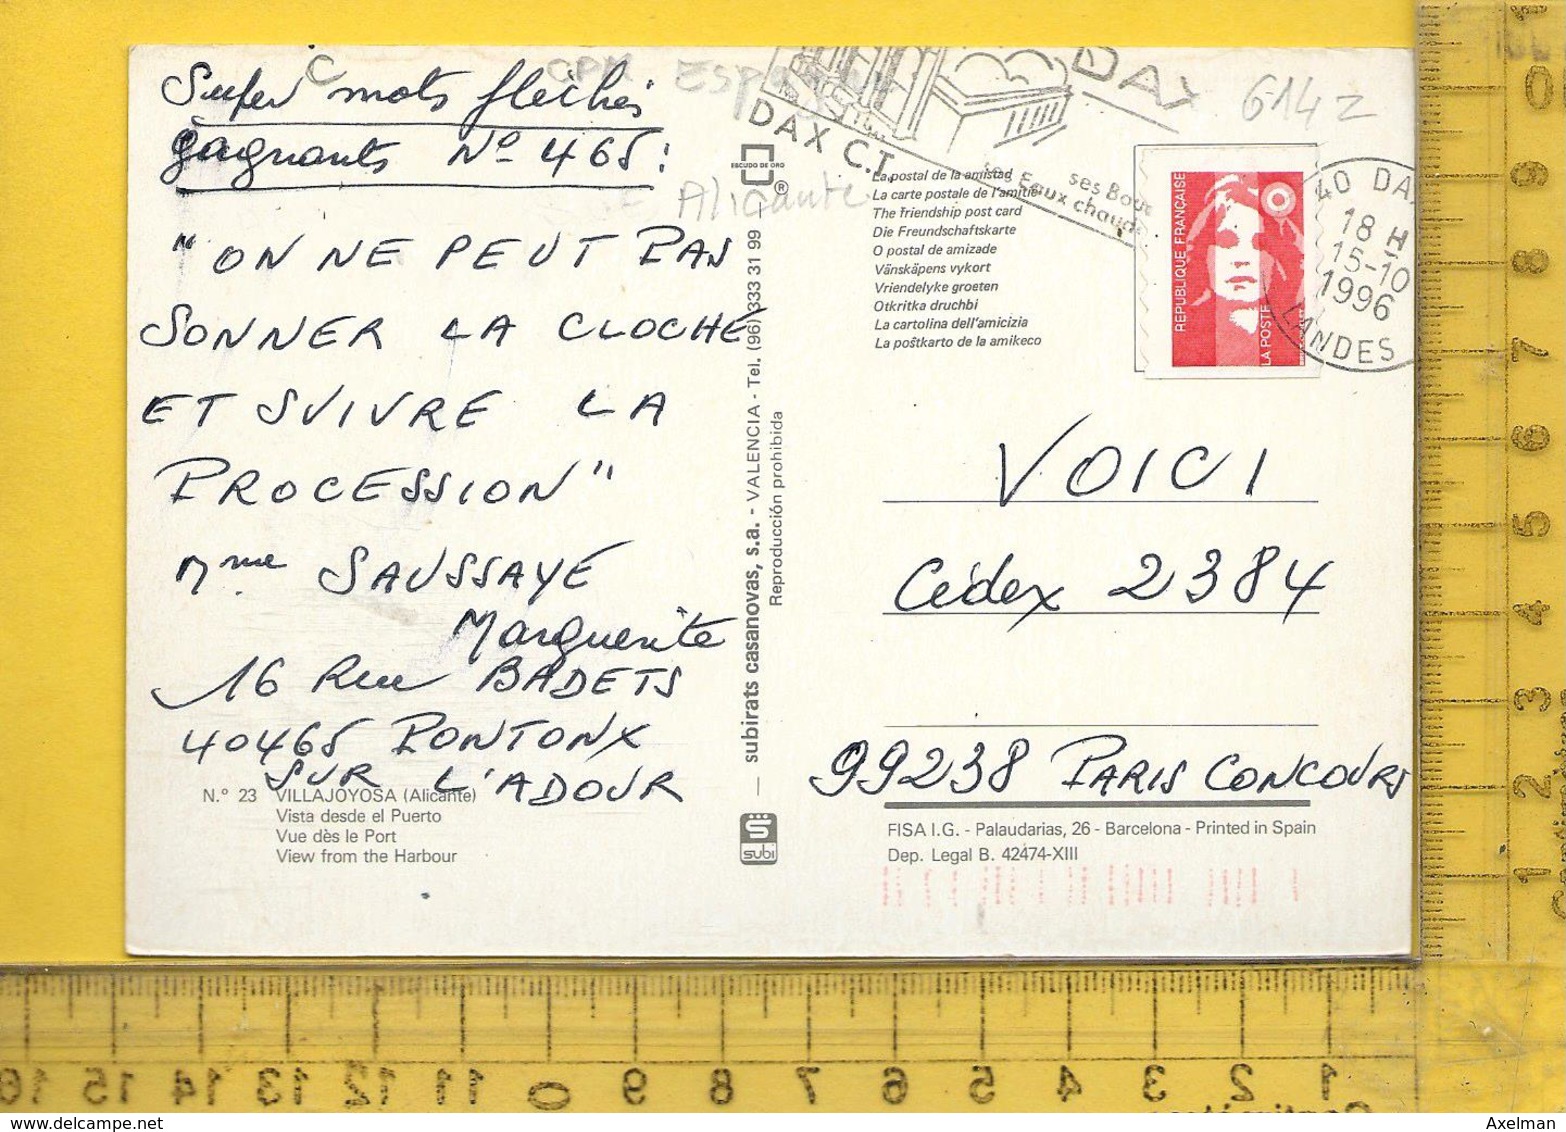 Super mots fléchés
gagnants Nº 465 :
"ON NE PEUT PAS
SONNER LA CLOCHE
ET SUIVRE LA
PROCESSION"
Mme SAUSSAYE
Marguerite
16 Rue BADETS
40465 PONTONX
SUR L'ADOUR
N.° 23 VILLAJOYOSA (Alicante)
Vista desde el Puerto
Vue dès le Port
View from the Harbour
C
CPM ESPAGNE
Alicante
6142
ESCUDO DE ORO
®
subirats casanovas, s.a. - VALENCIA - Tel. (96) 333 31 99
Reproducción prohibida
subi
DAX
DAX C.T.
ses Eaux chaudes
La postal de la amistad
La carte postale de l'amitié
The friendship post card
Die Freundschaftskarte
O postal de amizade
Vänskäpens vykort
Vriendelyke groeten
Otkritka druchbi
La cartolina dell'amicizia
La poŝtkarto de la amikeco
REPUBLIQUE FRANÇAISE
LA POSTE
40 DAX
18 H
15-10
1996
LANDES
VOICI
Cédex 2384
99238 PARIS CONCOURS
FISA I.G. - Palaudarias, 26 - Barcelona - Printed in Spain
Dep. Legal B. 42474-XIII
0
9
8
7
6
5
4
3
2
1
16 15 14 13 12 11 0 9 8 7 6 5 4 3 2 1
www.delcampe.net
Axelman